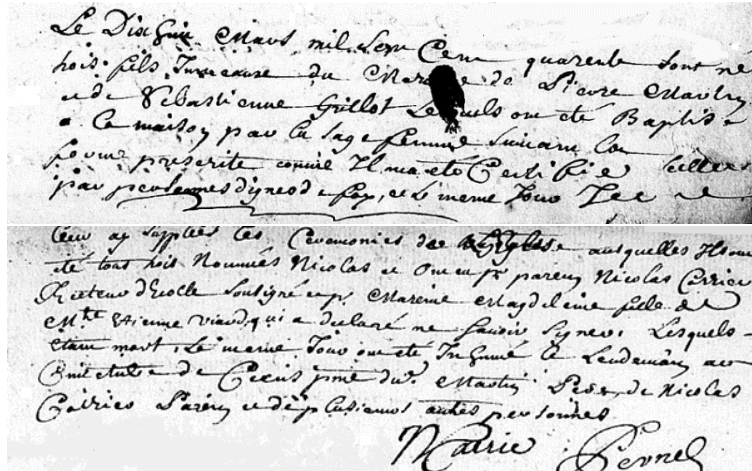 Le Dix huit Mars mil sept Cent quarente sont né
trois fils Jumeaux du Mariage de Pierre Martin
et de Sebastienne Grillot Lesquels ont été Baptisé
a la maison par la Sage femme Suivant la
forme prescrite comme Il m'a été Certifié
par personnes dignes de foy, et le meme Jour Je
leur ay supplées les Ceremonies de l'Eglise ausquelles Ils ont
été tous trois Nommés Nicolas et ont eu pr parein Nicolas
Recteur d'Ecolle soussigné et pr Mareine Magdeleine fille de
Mtre Etienne Viard qui a declaré ne savoir Signer, Lesquels
étant mort, Le meme Jour ont été Inhumé Le Lendemain au
de Pierre Martin Pere de Nicolas
Parein et de plusieurs autres personnes